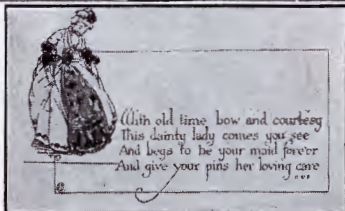 With old time bow and courtesy
This dainty lady comes you see
And begs to be your maid forever
And give your pins her loving care